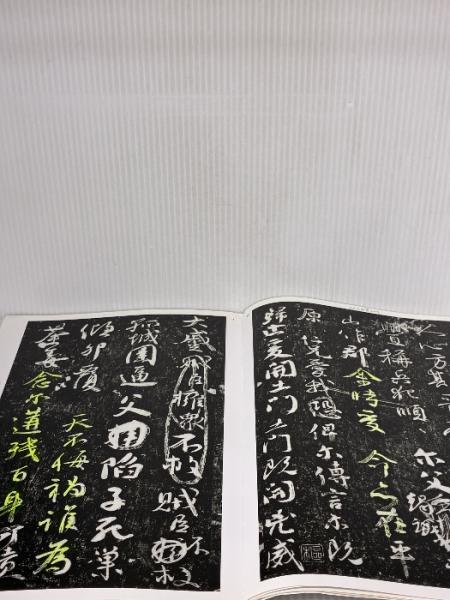 人心方期
稱兵犯順 尔父竭誠
山作郡 余時受命 亦在平
原 仁兄愛我 俾尔傳言 尔既
歸止 爰開土門 土門既開 凶威
大蹙 賊臣擁眾不救 賊臣不救
孤城圍逼 父陷子死 巢
傾卵覆 天不悔禍 誰為
荼毒 念尔遘殘 百身何